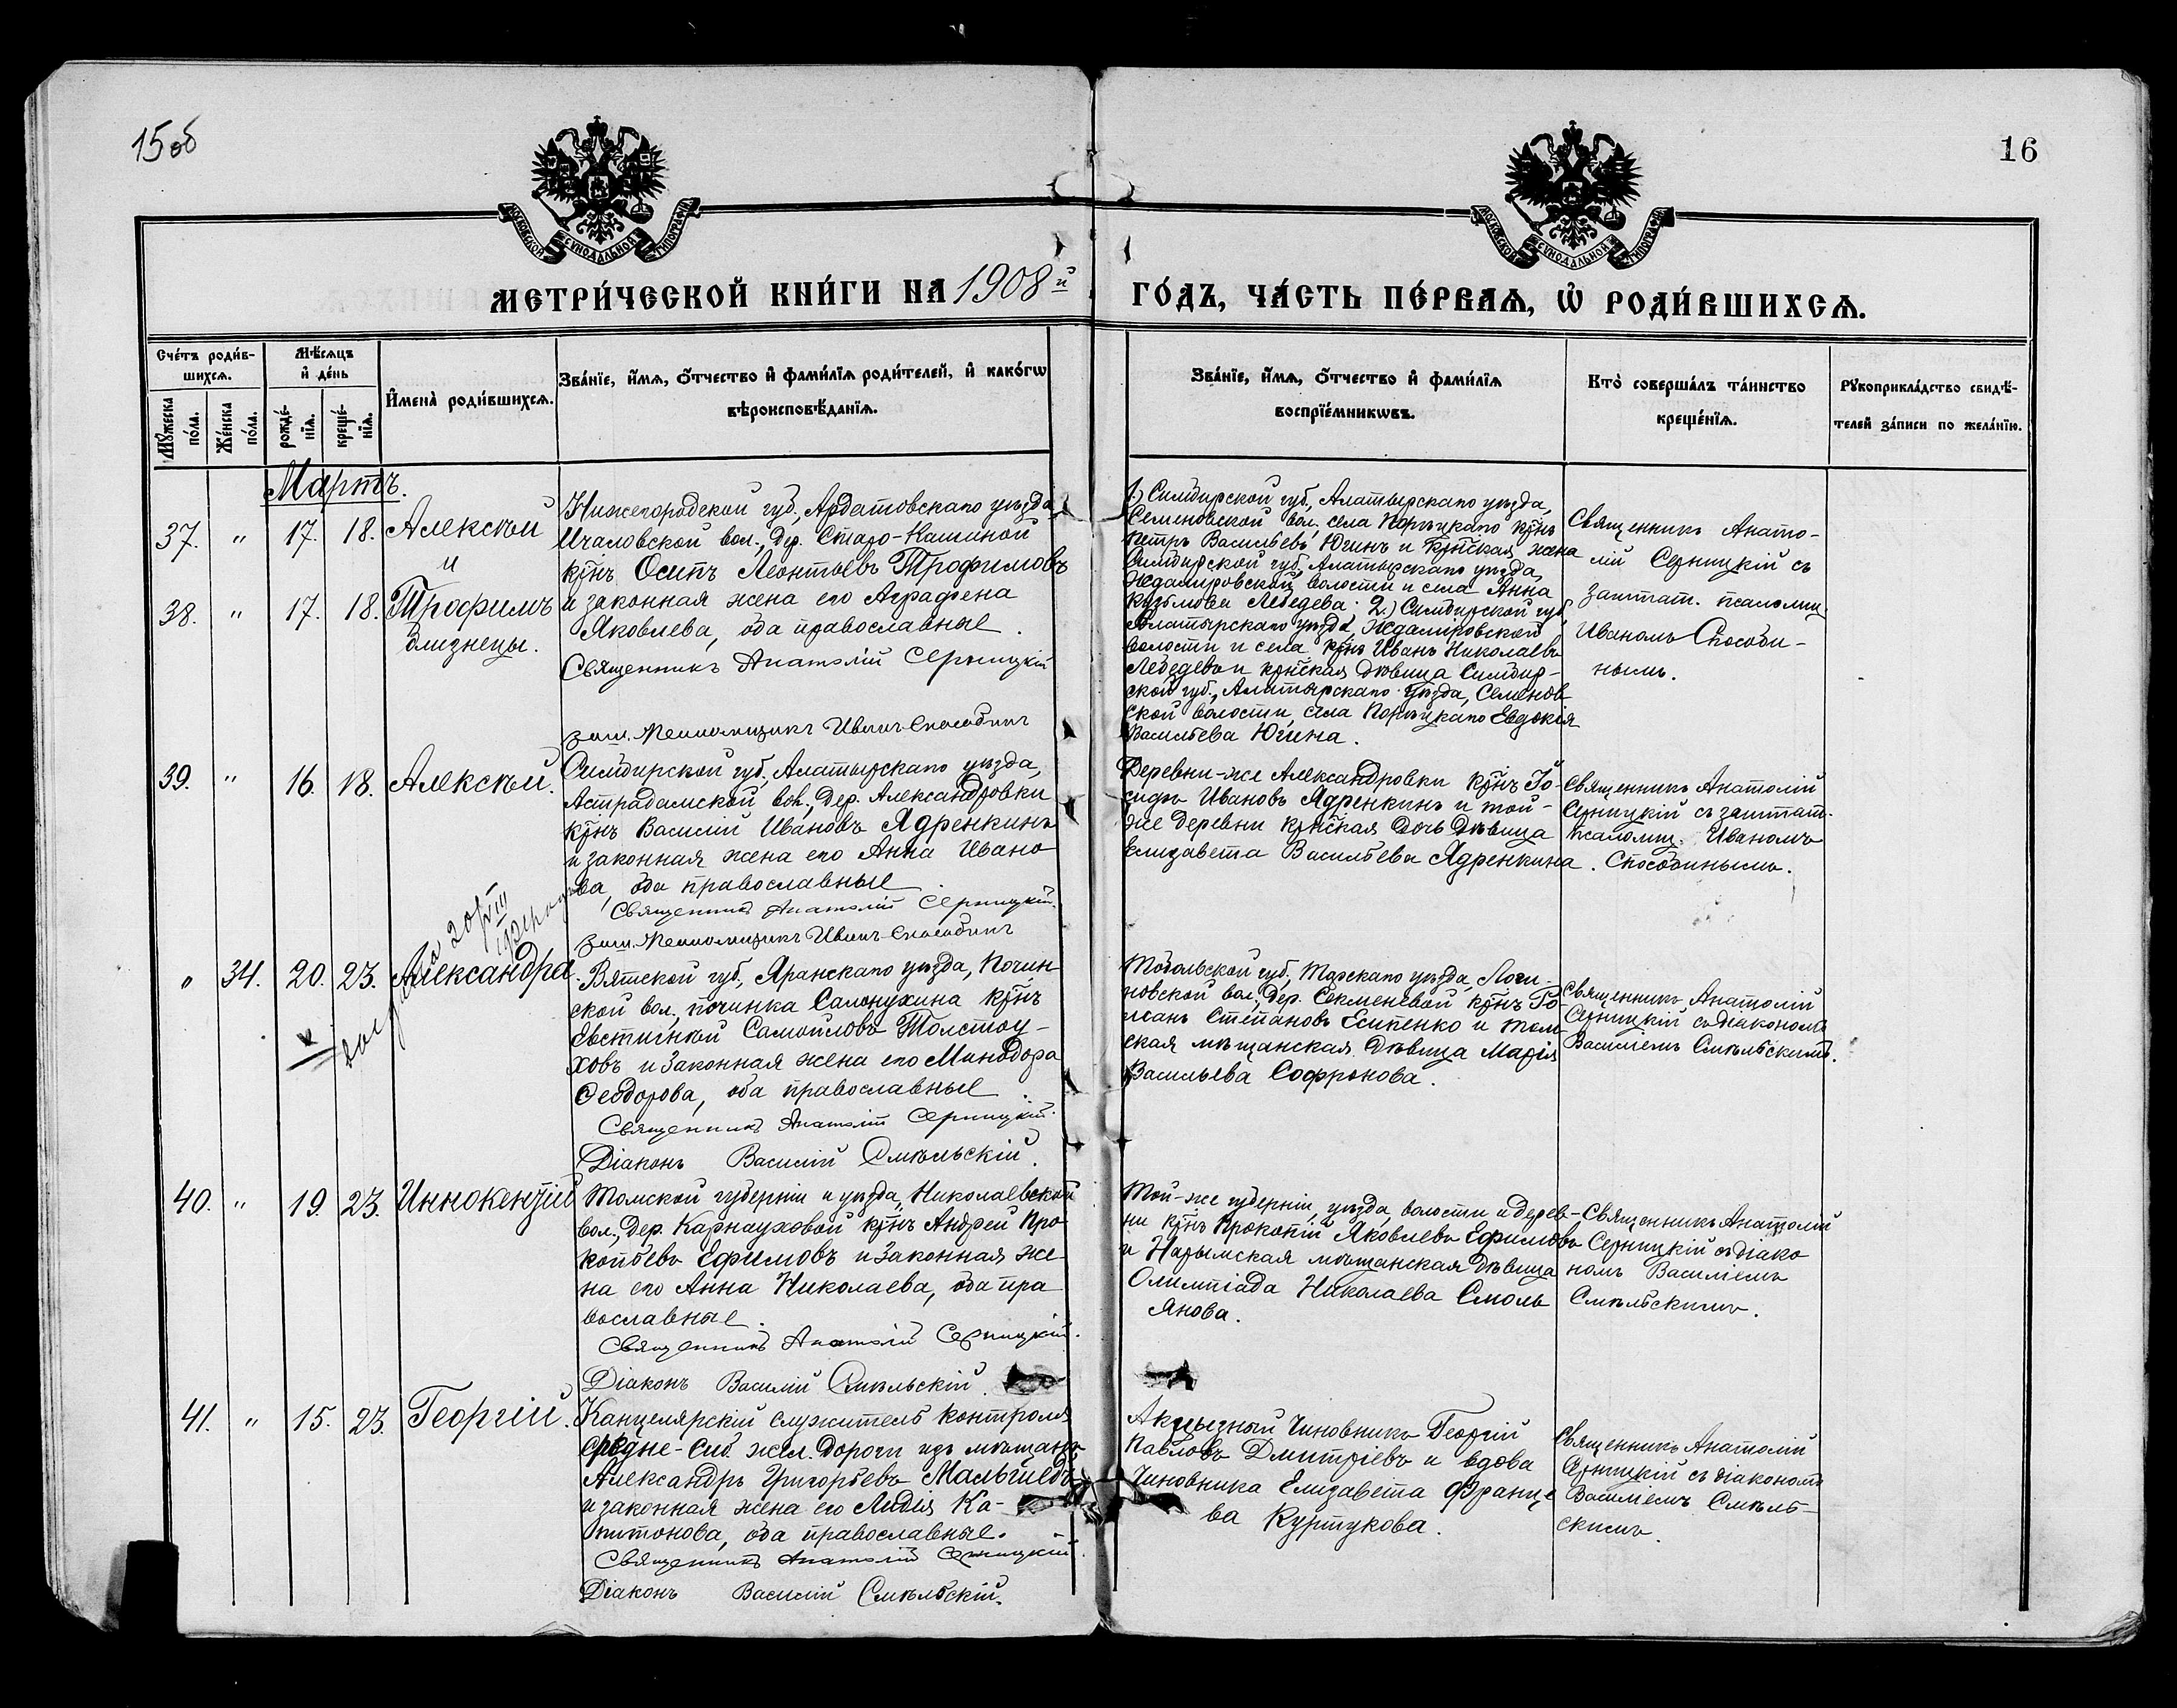 15об
16
МОСКОВСКОЙ СѴНОДАЛЬНОЙ ТИПОГРАФІИ
МОСКОВСКОЙ СѴНОДАЛЬНОЙ ТИПОГРАФІИ
МЕТРИ́ЧЕСКОЙ КНИ́ГИ НА 1908й
ГО́ДЪ, ЧА́СТЬ ПЕ́РВАѦ, Ѽ РОДИ́ВШИХСѦ.
Сче́тъ роди́в-
шихсѧ.
Мꙋ́жеска по́ла.
Же́нска по́ла.
Мѣ́сѧцъ
и҆ де́нь
рожде́-
нїѧ.
креще́-
нїѧ.
И҆мена̀ роди́вшихсѧ.
Зва́нїе, и҆́мѧ, ѻ҆́тчество и҆ фами́лїѧ роди́телей, и҆ како́гѡ
вѣроисповѣ́данїѧ.
Зва́нїе, и҆́мѧ, ѻ҆́тчество и҆ фами́лїѧ
воспрїе́мникѡвъ.
Кто̀ соверша́лъ та́инство
креще́нїѧ.
Рꙋкоприкла́дство свидѣ́-
телей за́писи по жела́нїю.
Мартъ.
37. " 17. 18. Алексѣй
и
38. " 17. 18. Трофимъ
близнецы.
Нижегородской губ., Ардатовскаго уѣзда,
Ичаловской вол., дер. Старо-Качиной
крⷭ҇нъ Осипъ Леонтьевъ Трофимовъ
и законная жена его Аграфена
Яковлева, оба православные.
Священникъ Анатолій Серницкій
заш. Псаломщикъ Иванъ Способинъ
1.) Симбирской губ., Алатырскаго уѣзда,
Семеновской вол. села Порѣцкаго крнъ
Петръ Васильевъ Югинъ и крнская жена
Симбирской губ. Алатырскаго уѣзда,
Ждамировской волости и села Анна
Кузьмова Лебедева. 2.) Симбирской губ,
Алатырскаго уѣзда, Ждамировской
волости и села крнъ Иванъ Николаевъ
Лебедевъ и крнская дѣвица Симбир-
ской губ., Алатырскаго уѣзда, Семенов
ской волости, села Порѣцкаго Евдокія
Васильева Югина.
Священникъ Анато-
лій Серницкій съ
заштат. псаломщ.
Иваномъ Способи-
нымъ.
39. " 16. 18. Алексѣй.
Симбирской губ., Алатырскаго уѣзда,
Астрадамской вол., дер. Александровки
крнъ Василій Ивановъ Ядренкинъ
и законная жена его Анна Ивано
ва, оба православные.
Священникъ Анатолій Серницкій.
заш. Псаломщикъ Иванъ Способинъ
Деревни-же Александровки крнъ Іо-
сифъ Ивановъ Ядренкинъ и той-
же деревни крнская дочь дѣвица
Елизавета Васильева Ядренкина.
Священникъ Анатолій
Серницкій съ заштат.
псаломщ. Иваномъ
Способинымъ.
" 34. 20. 23. Александра.
Вятской губ., Яранскаго уѣзда, Почин-
ской вол., починка Салонухина крнъ
Евстигнѣй Самойловъ Толстоу-
ховъ и законная жена его Минодора
Ѳеодорова, оба православные
Священникъ Анатолій Серницкій.
Діаконъ Василій Смѣльскій.
Тобольской губ., Тарскаго уѣзда, Логи-
новской вол., дер. Секменевой крнъ Ро-
манъ Степановъ Есипенко и том-
ская мѣщанская дѣвица Марія
Васильева Софронова.
Священникъ Анатолій
Серницкій съ діакономъ
Василіемъ Смѣльскимъ.
40. " 19. 23. Иннокентій
Томской губерніи и уѣзда, Николаевской
вол., дер. Карнауховой крнъ Андрей Про
копьевъ Ефимовъ и законная же-
на его Анна Николаева, оба пра
вославные.
Священникъ Анатолій Серницкій.
Діаконъ Василій Смѣльскій.
Той-же губерніи, уѣзда, волости и дерев-
ни крнъ Прокопій Яковлевъ Ефимовъ
и Нарымская мѣщанская дѣвица
Олимпіада Николаева Смоль
янова.
Священникъ Анатолій
Серницкій съ діако
номъ Василіемъ
Смѣльскимъ.
41. " 15. 23. Георгій.
Канцелярскій служитель контроля
Средне-Сиб. жел. дороги изъ мѣщанъ
Александръ Григорьевъ
и законная жена его Лидія Ка-
питонова, оба православные.
Священникъ Анатолій Серницкій.
Діаконъ Василій Смѣльскій.
Акцызный Чиновникъ Георгій
Павловъ Дмитріевъ и вдова
Чиновника Елизавета Францe
ва Куртукова.
Священникъ Анатолій
Серницкій съ діакономъ
Василіемъ Смѣль-
скимъ.